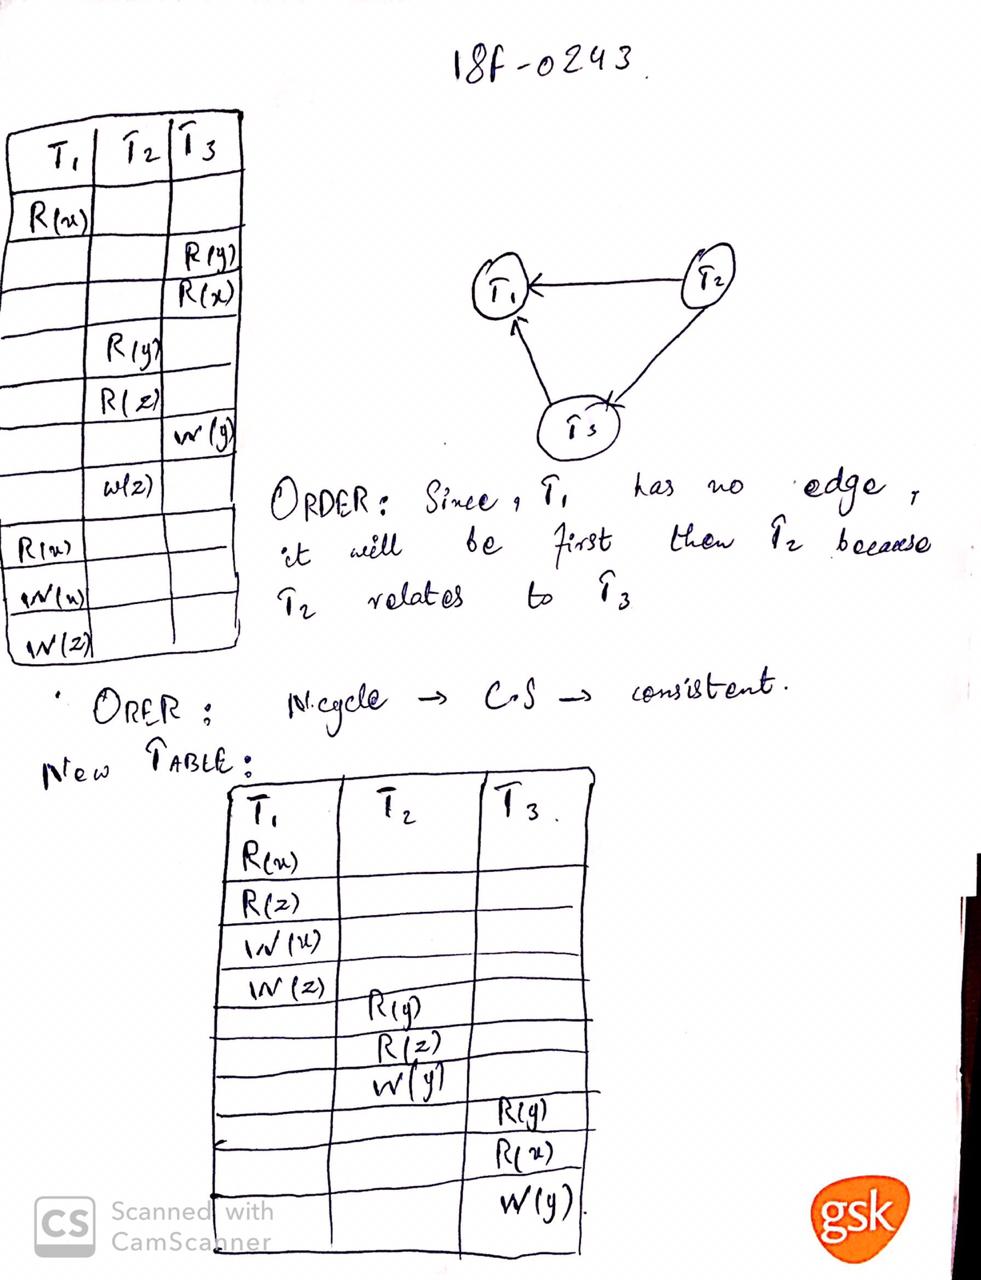 18F-0243.
T1 T2 T3
R(x)
R(y)
R(x)
R(y)
R(z)
W(y)
W(z)
R(x)
W(x)
W(z)
T1 T2
T3
ORDER: Since, T1 has no edge,
it will be first then T2 because
T2 relates to T3
ORER: N.cycle → C.S → consistent.
New TABLE:
T1 T2 T3.
R(x)
R(z)
W(x)
W(z)
R(y)
R(z)
W(y)
R(y)
R(x)
W(y)
CS Scanned with
CamScanner
gsk